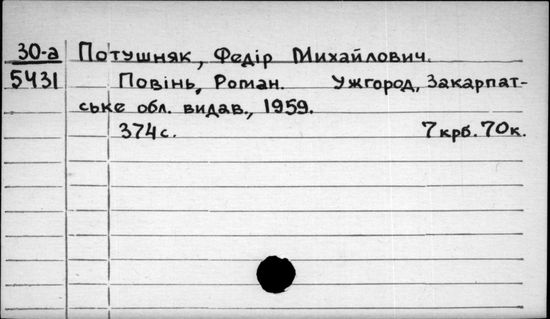 30-а Потушняк, Федір Михайлович.
5431 Повінь. Роман. Ужгород, Закарпат-
ське обл. видав., 1959.
374с. 7крб. 70к.